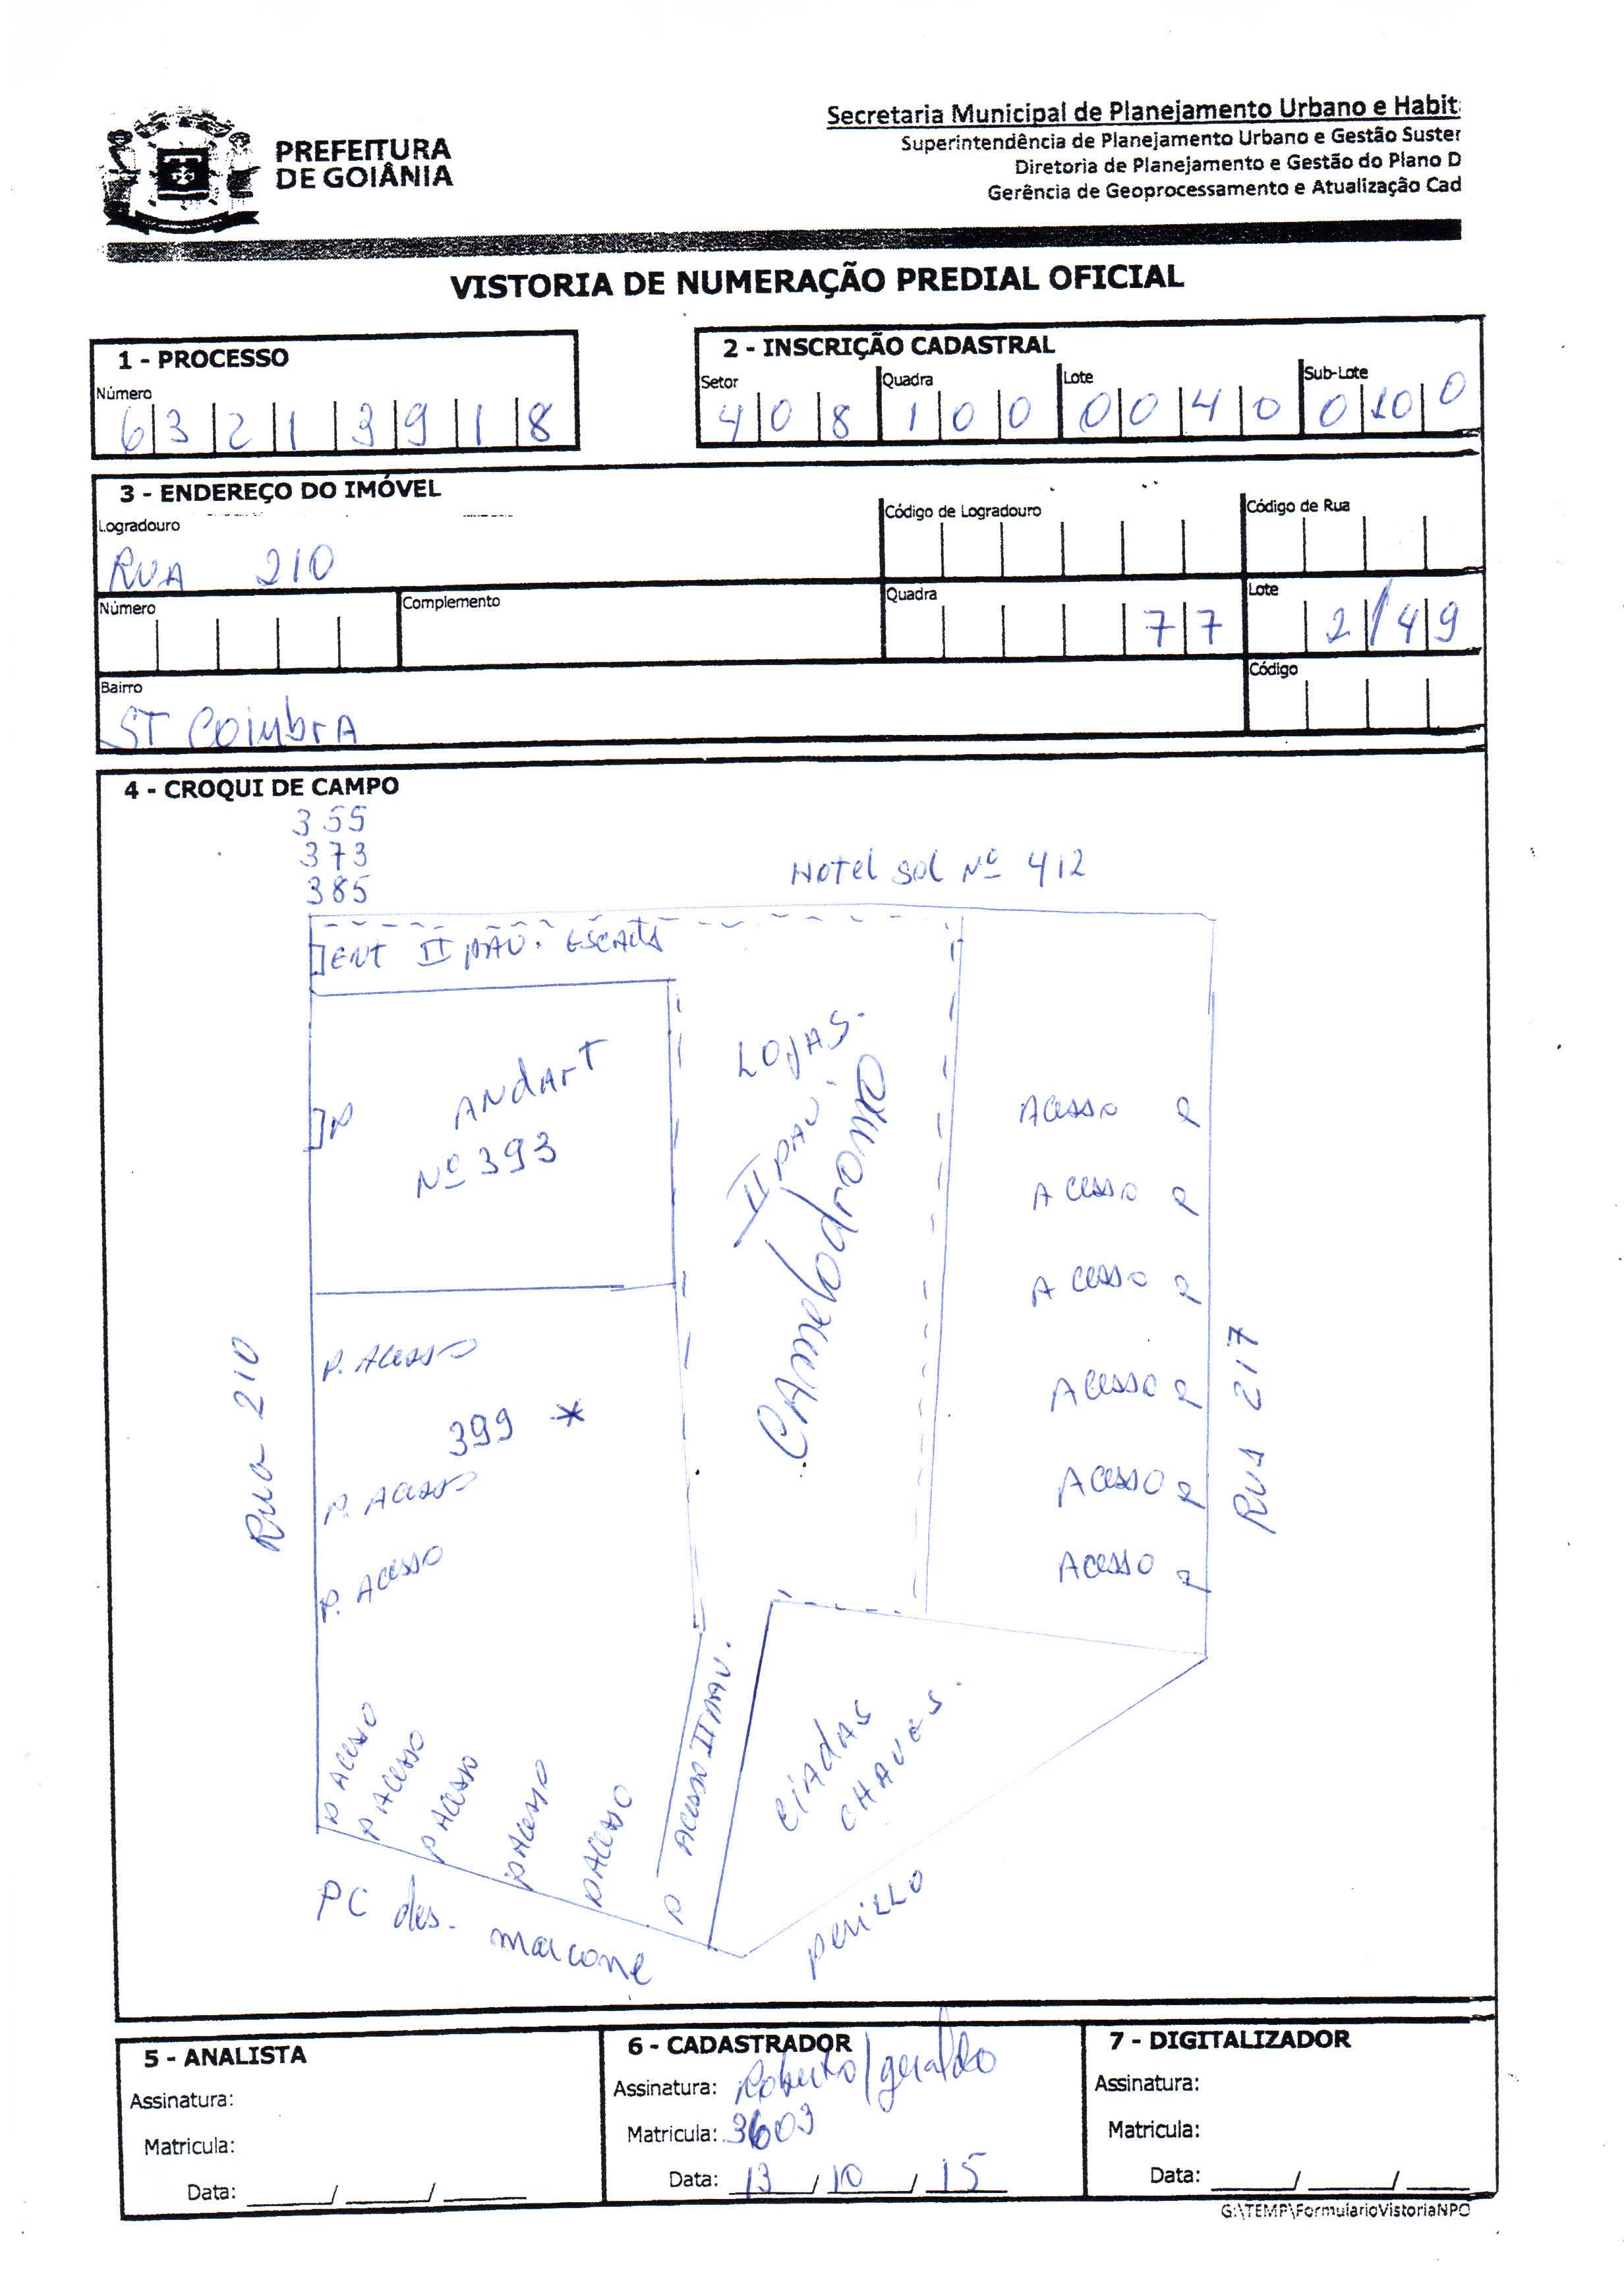 PREFEITURA
DE GOIÂNIA
Secretaria Municipal de Planejamento Urbano e Habit
Superintendência de Planejamento Urbano e Gestão Suster
Diretoria de Planejamento e Gestão do Plano D
Gerência de Geoprocessamento e Atualização Cad
VISTORIA DE NUMERAÇÃO PREDIAL OFICIAL
1 - PROCESSO
Número
6 3 2 1 3 9 1 8
2 - INSCRIÇÃO CADASTRAL
Setor Quadra Lote Sub-Lote
4 0 8 1 0 0 0 0 4 0 0 10 0
3 - ENDEREÇO DO IMÓVEL
Logradouro Código de Logradouro Código de Rua
RUA 210
Número Complemento Quadra Lote
7 7 2 / 4 9
Bairro Código
ST COimbrA
4 - CROQUI DE CAMPO
355
373
385
Hotel Sol Nº 412
ENT II PAV. ESCADA
ANdArT
Nº 393
P
LOJAS.
II PAV.
CAmelodromo
Acesso P
Acesso P
Acesso P
Acesso P
Acesso P
Acesso P
Rua 210
RUA 217
P. Acesso
399 *
P. Acesso
P. Acesso
P Acesso
P Acesso
P Acesso
P Acesso
P Acesso
P Acesso II PAV.
CIADAS
CHAVES.
PC des. marcone
perillo
5 - ANALISTA
Assinatura:
Matricula:
Data: ____/____/____
6 - CADASTRADOR
Assinatura: Roberto/geraldo
Matricula: 3603
Data: 13/10/15
7 - DIGITALIZADOR
Assinatura:
Matricula:
Data: ____/____/____
G:\TEMP\FormularioVistoriaNPO